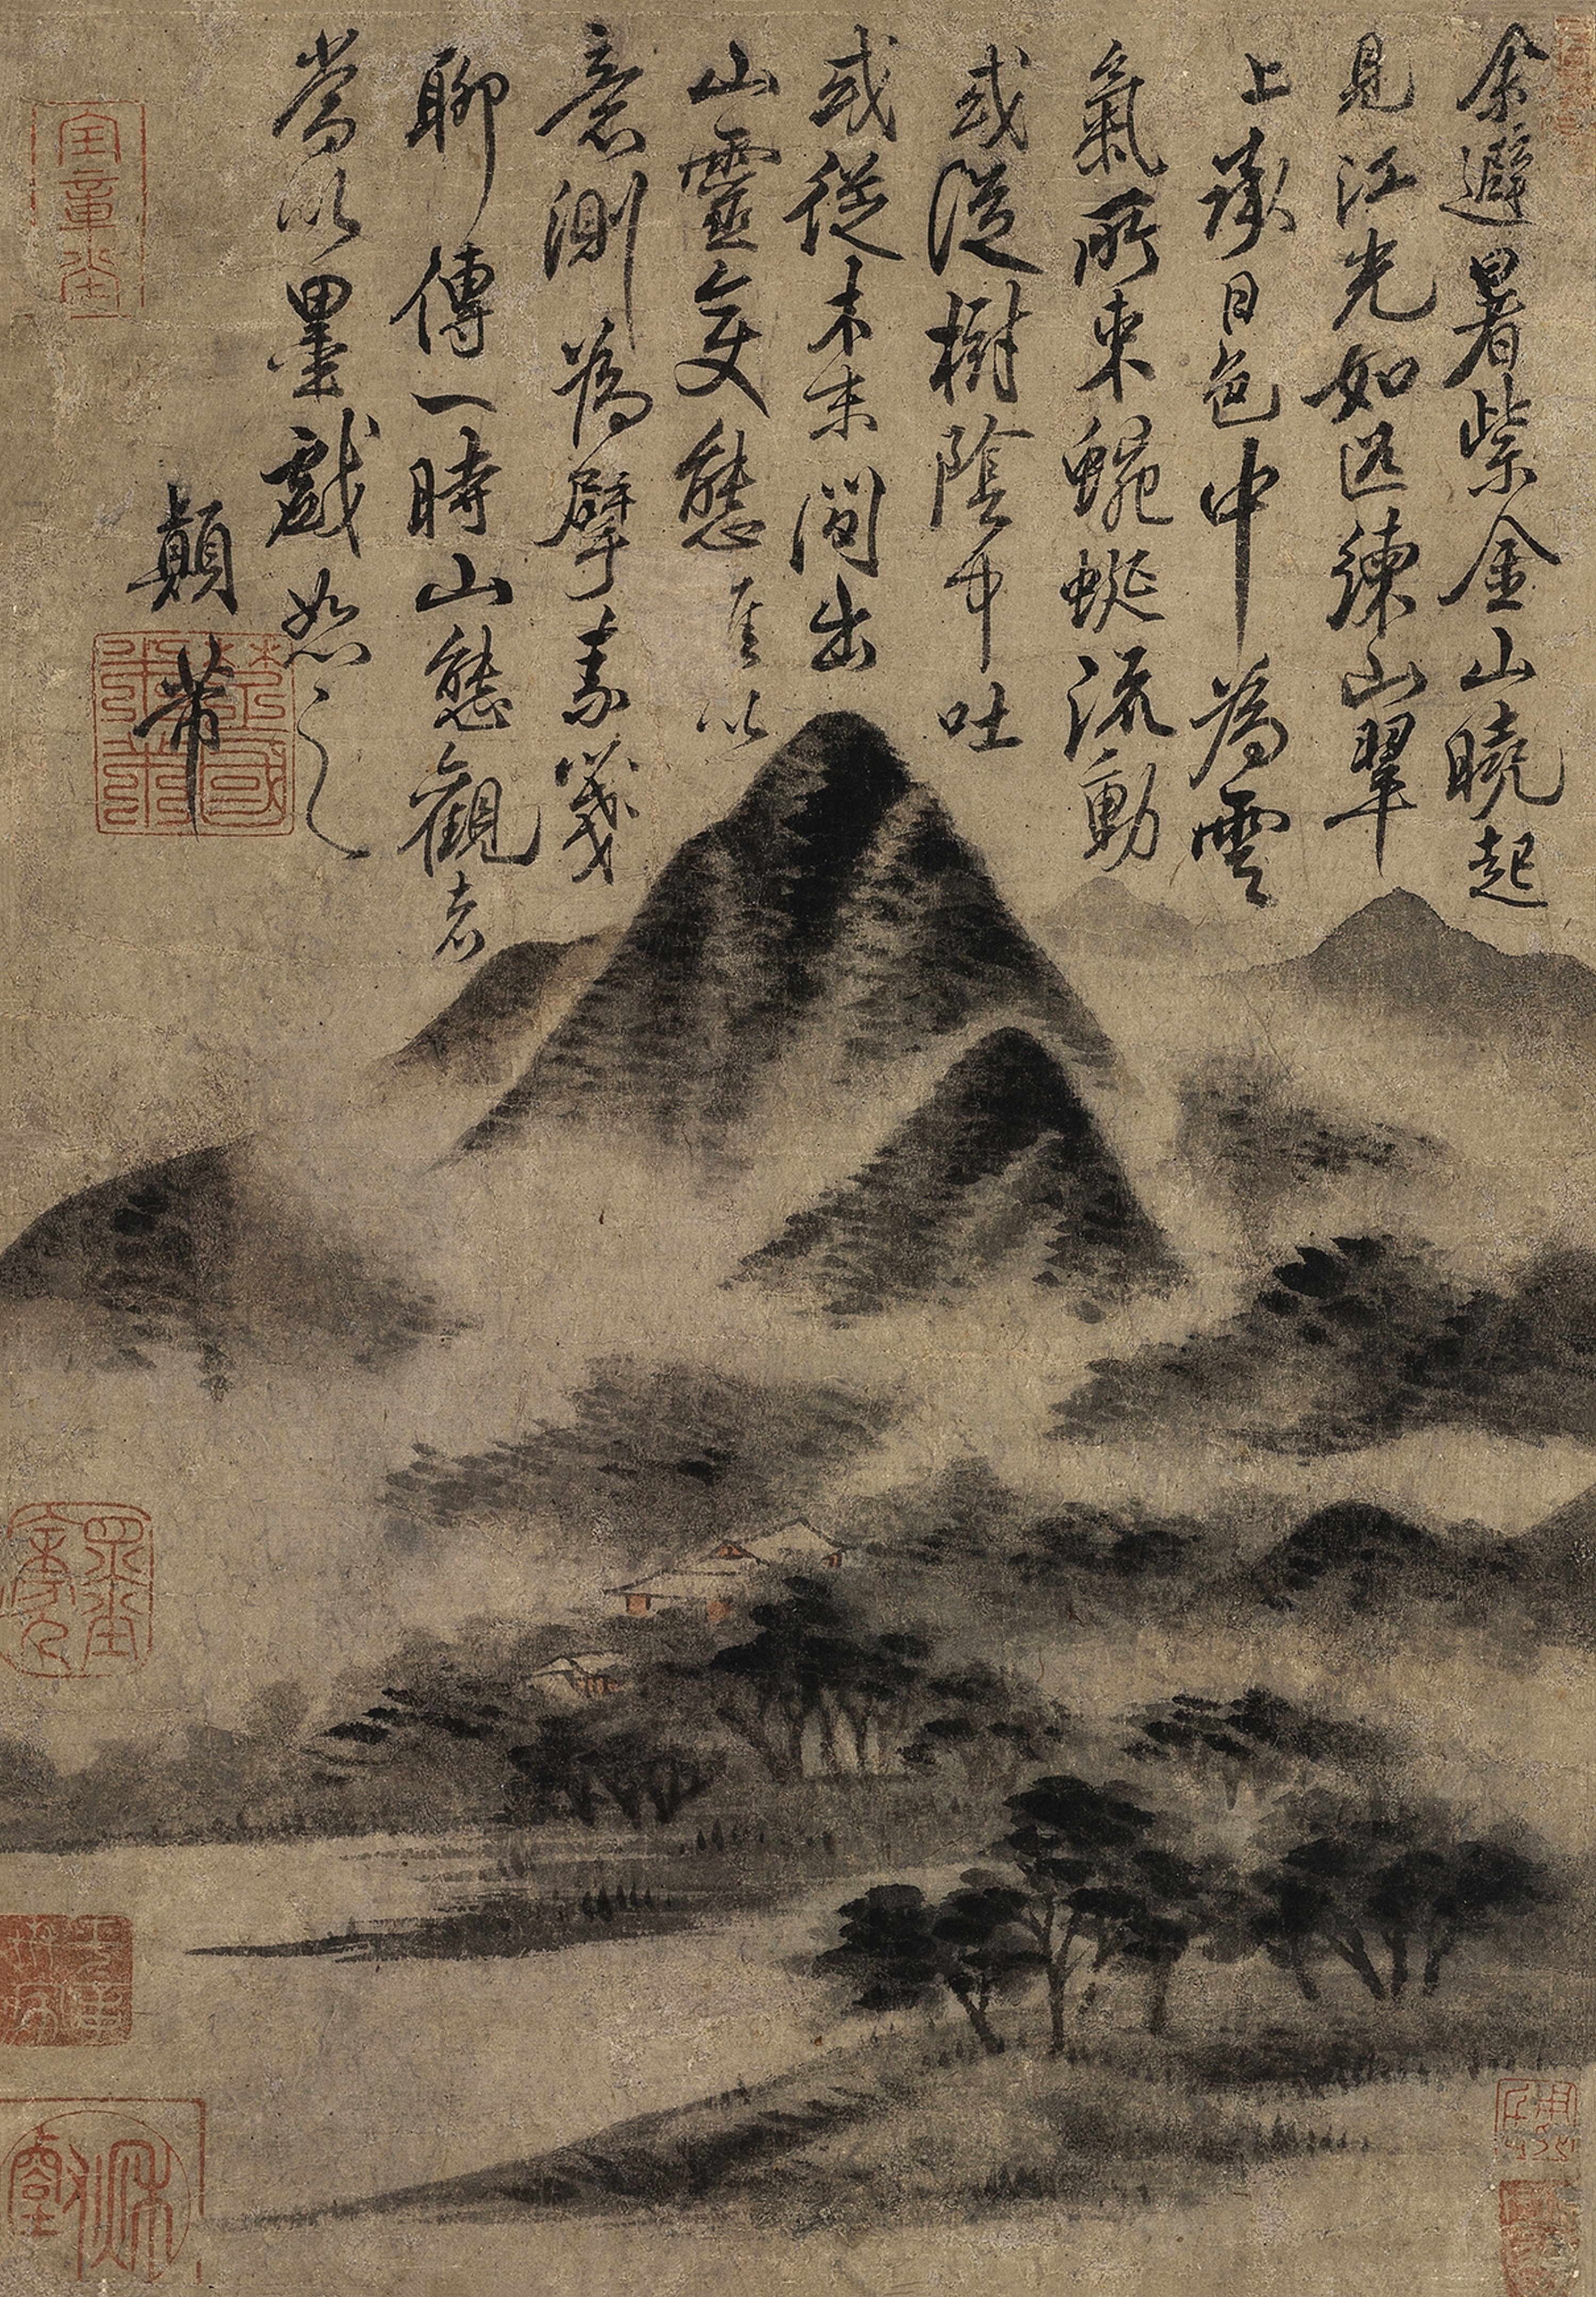 余避暑紫金山曉起
見江光如匹練山翠
上承日色中為雲
氣所束蜿蜒流動
或從樹陰中吐
或從木末間出
山靈變態 以
意測為擘素箋
聊傳一時山態觀者
當以墨戲恕之
顛芾